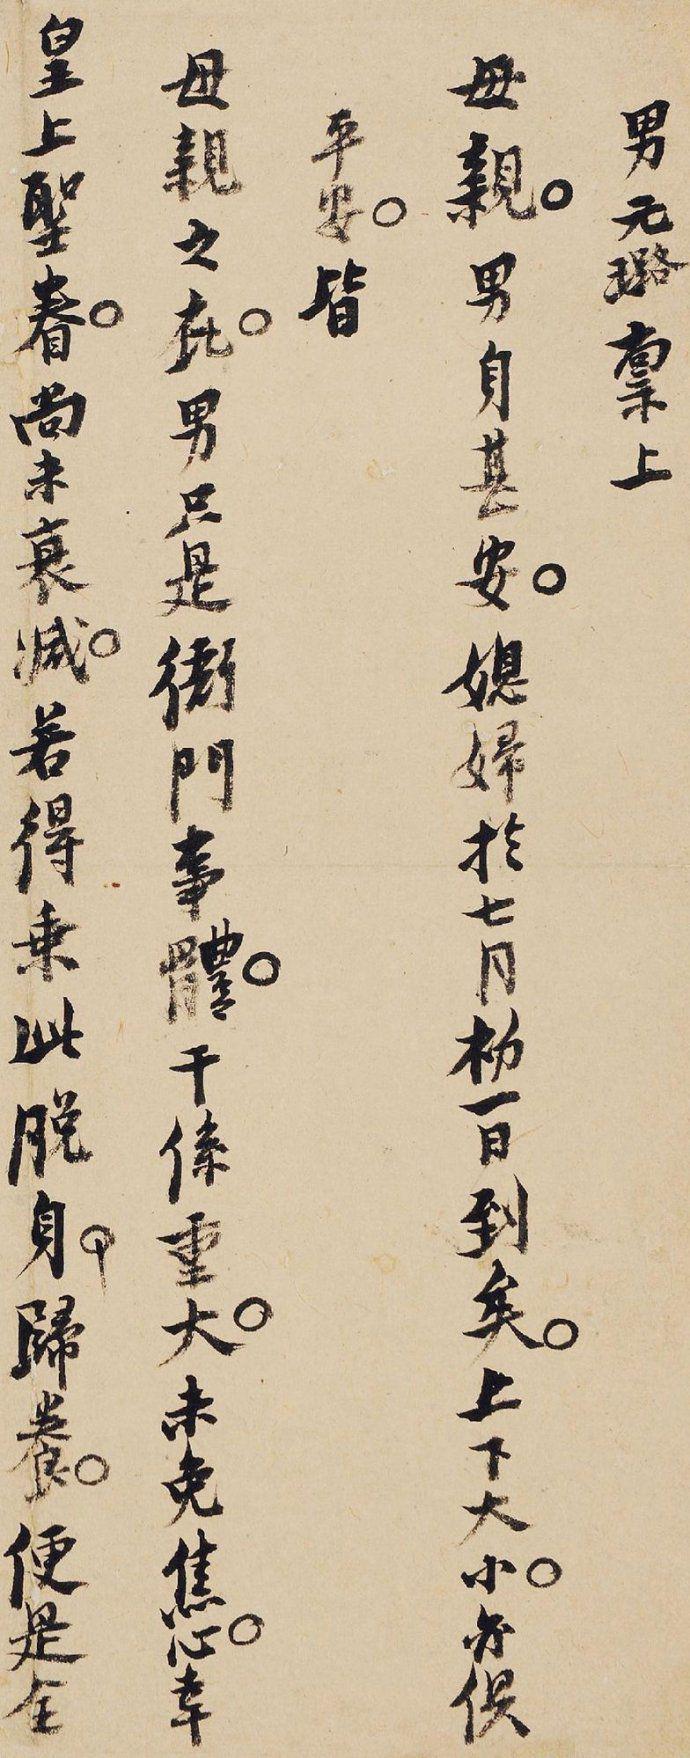 男元璐禀上
母親。男身甚安。媳婦於七月初一日到矣。上下大小。亦俱
平安。皆
母親之庇。男只是衙門事體。干係重大。未免焦心。幸
皇上聖眷。尚未衰減。若得乘此脫身。歸養。便是全